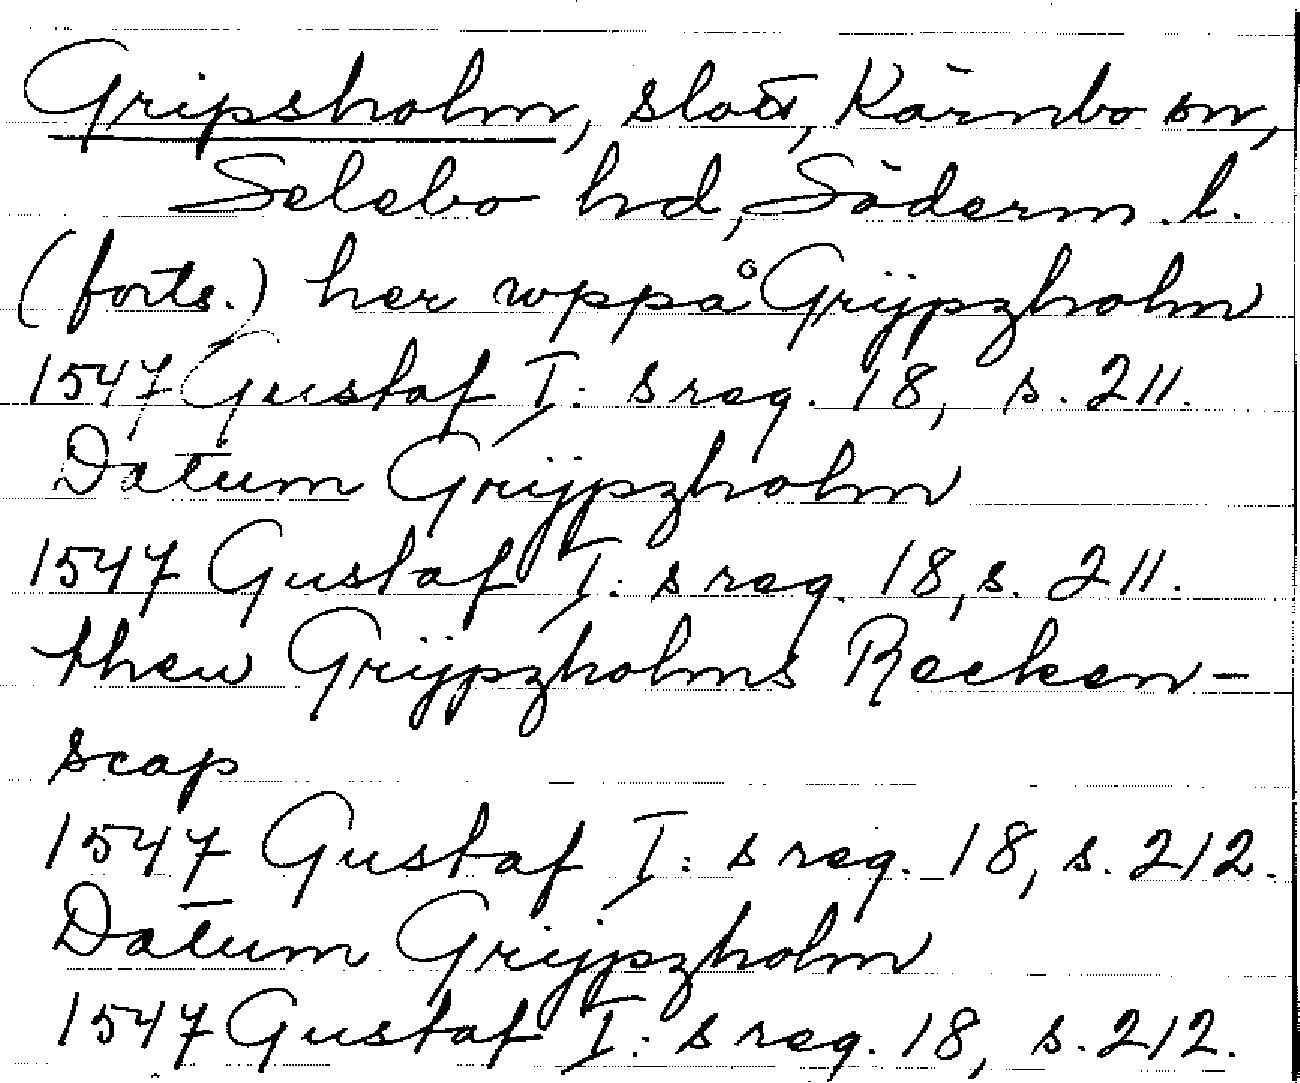 Gripsholm, slott, Kärnbo sn,
Selebo hd, Söderm. l.
(forts.) her wppå Grijpzholm
1547 Gustaf I:s reg. 18, s. 211.
Datum Grijpzholm
1547 Gustaf I:s reg. 18, s. 211.
theu Grijpzholms Recken-
scap
1547 Gustaf I:s reg. 18, s. 212.
Datum Grijpzholm
1547 Gustaf I:s reg. 18, s. 212.